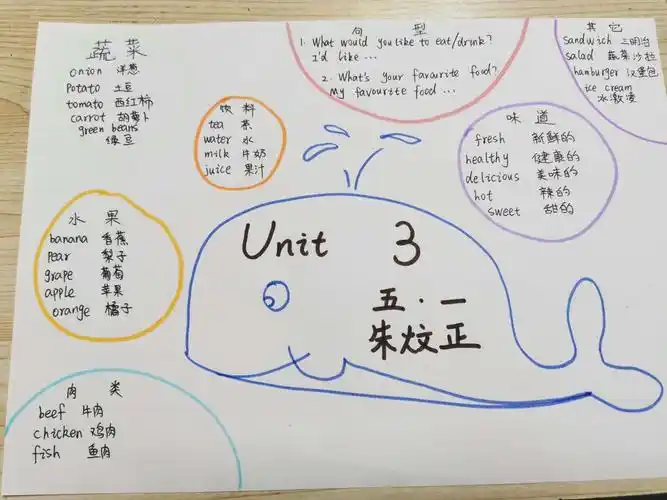 蔬菜
onion 洋葱
Potato 土豆
tomato 西红柿
carrot 胡萝卜
green beans
绿豆
饮料
tea 茶
water 水
milk 牛奶
juice 果汁
句型
1. What would you like to eat/drink?
I'd like ...
2. What's your favourite food?
My favourite food ...
其它
Sandwich 三明治
salad 蔬菜沙拉
hamburger 汉堡包
ice cream
冰激凌
味道
fresh 新鲜的
healthy 健康的
delicious 美味的
hot 辣的
sweet 甜的
水果
banana 香蕉
pear 梨子
grape 葡萄
apple 苹果
orange 橘子
Unit 3
五·一
朱炆正
肉类
beef 牛肉
chicken 鸡肉
fish 鱼肉